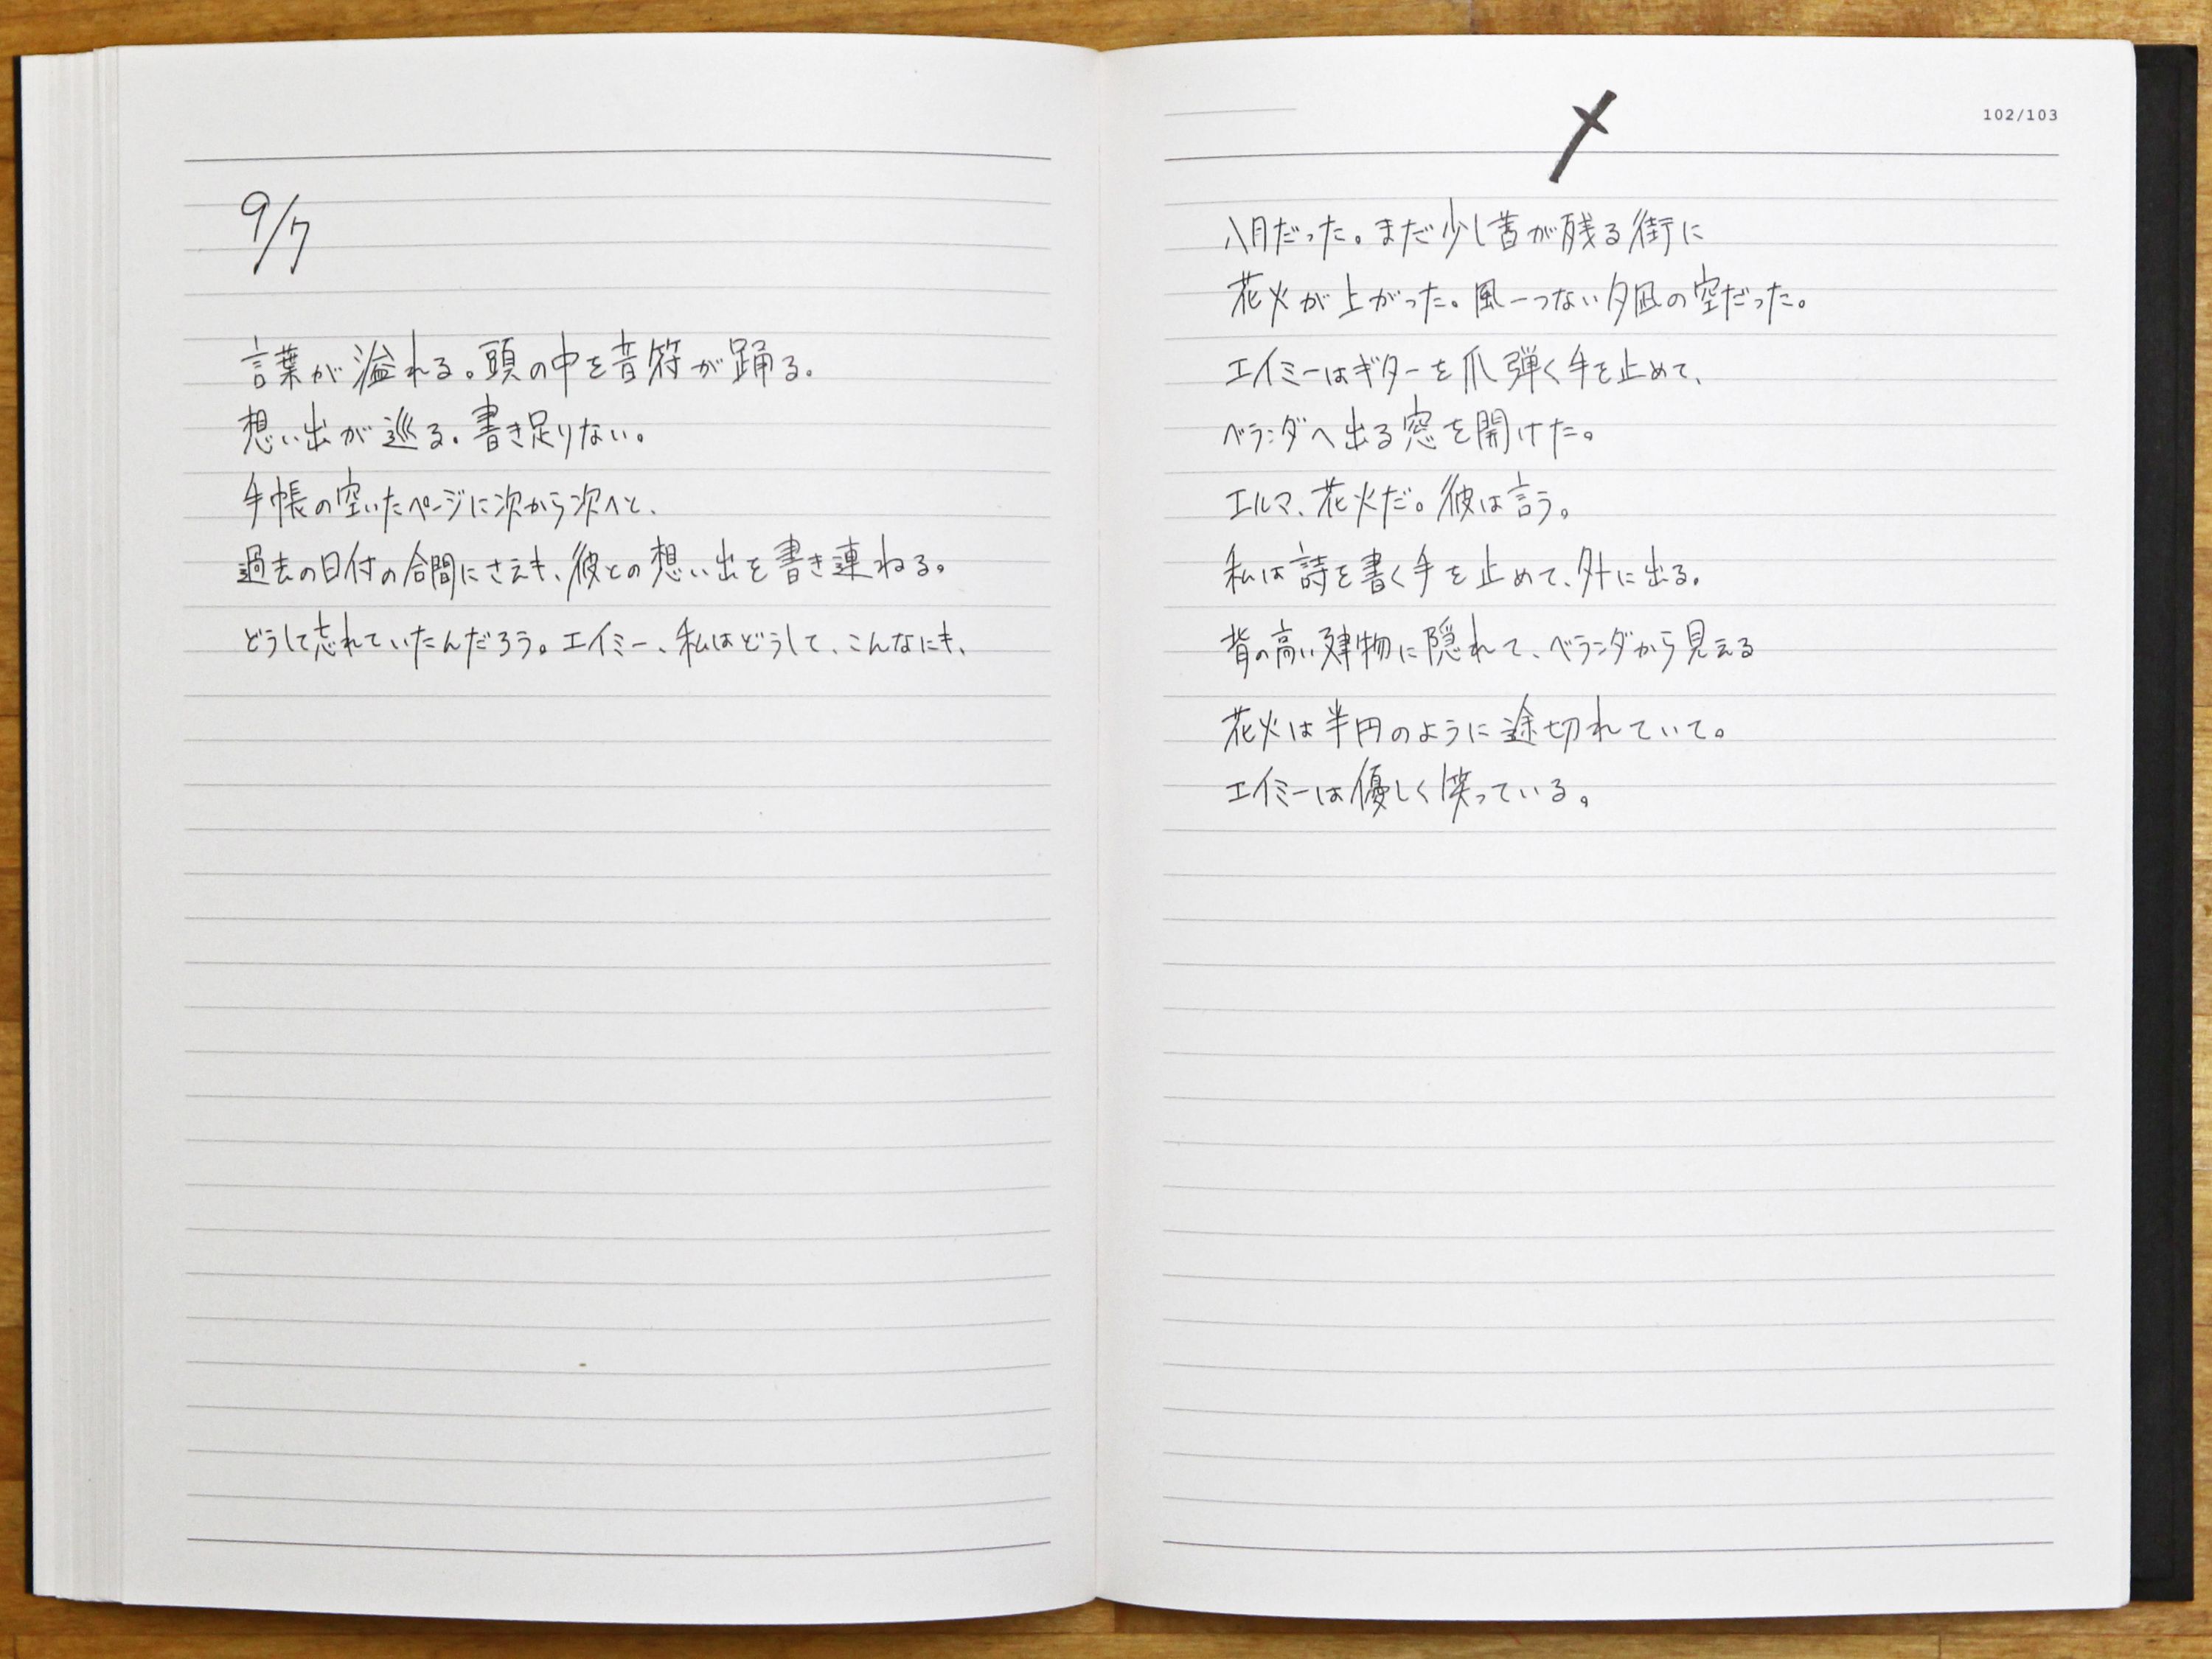 9/7
言葉が溢れる。頭の中を音符が踊る。
想い出が巡る。書き足りない。
手帳の空いたページに次から次へと、
過去の日付の合間にさえも、彼との想い出を書き連ねる。
どうして忘れていたんだろう。エイミー、私はどうして、こんなにも、
102/103
八月だった。まだ少し昔が残る街に
花火が上がった。風一つない夕凪の空だった。
エイミーはギターを爪弾く手を止めて、
ベランダへ出る窓を開けた。
エルマ、花火だ。彼は言う。
私は詩を書く手を止めて、外に出る。
背の高い建物に隠れて、ベランダから見える
花火は半円のように途切れていて。
エイミーは優しく笑っている。